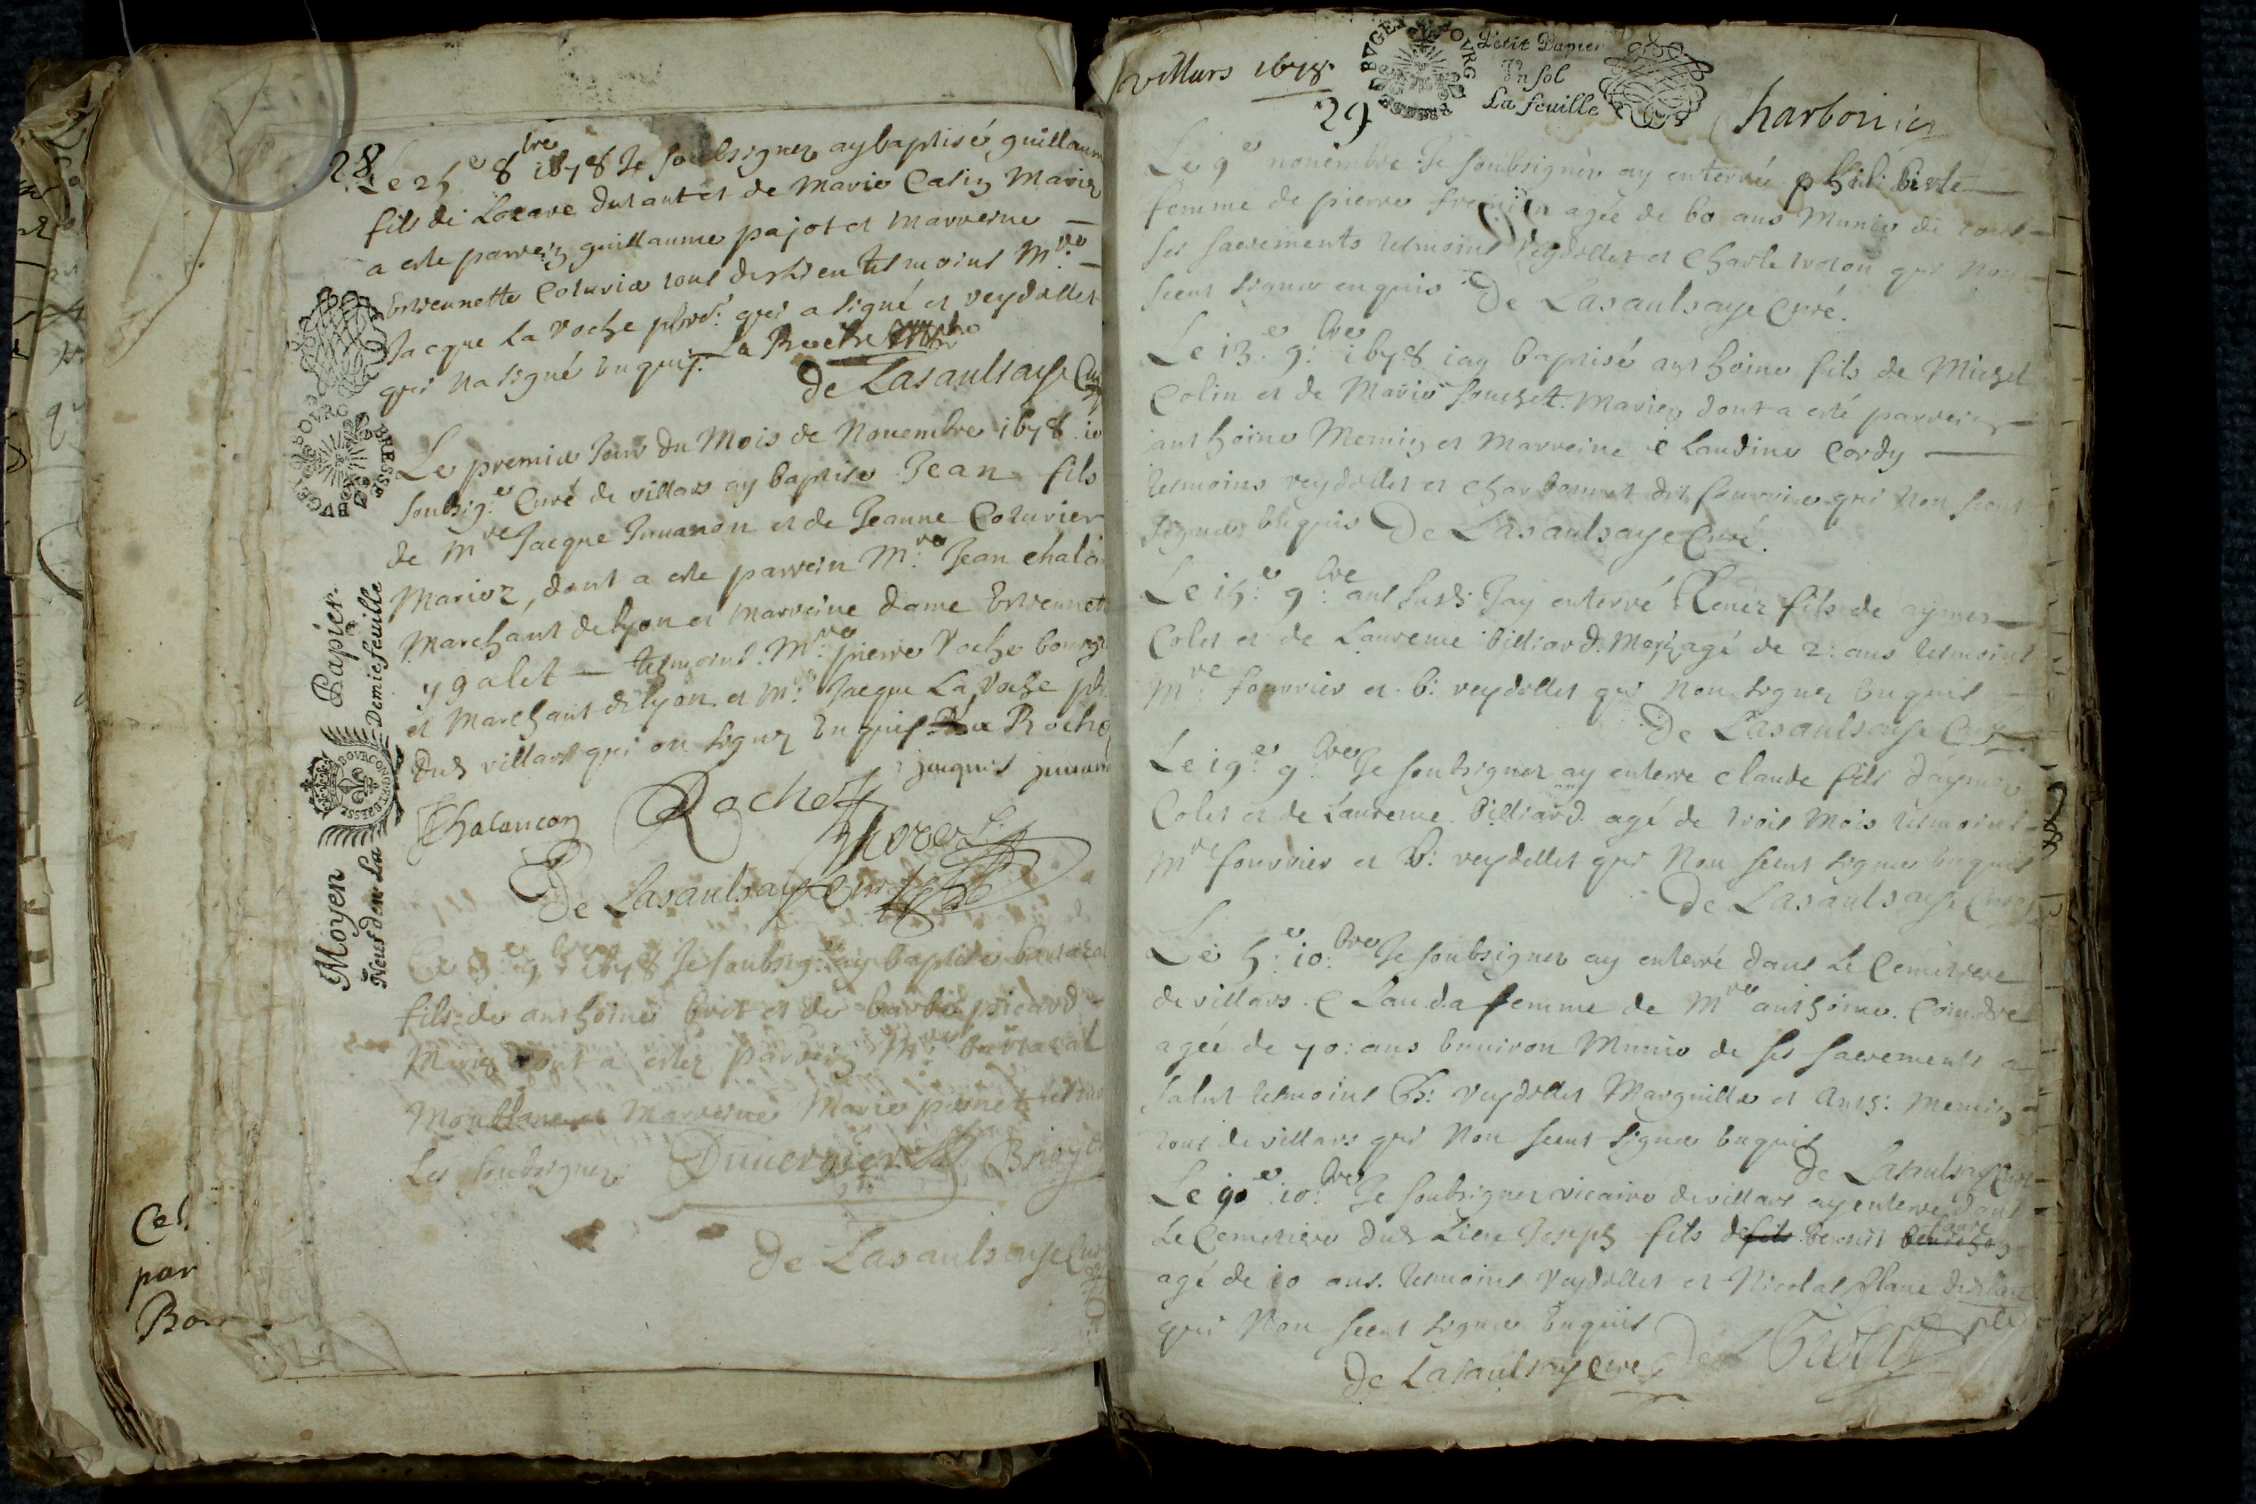 28
Le 25e 8bre 1678 Je soubsignez ay baptisé guillaume
fils de Lazare durant et de Marie Casin Mariez
a esté parrein guillaume pajot et marreine
Estiennette Coturier tous tesmoins Mre
Jacque La Roche qui a signé et reydellet
qui na signé Enquis. La Roche
De Lasaulsaye Curé
Le premier Jour du Mois de Novembre 1678 ie
soubsig: Curé de villars ay baptisé Jean fils
de Mre Jacque Juuanon et de Jeanne Coturier
Mariez, dont a esté parrein Mre Jean chalan
Marchant de Lyon et marreine dame Estiennette
ygalet — tesmoins. Mre pierre Roche bourg
et Marchant de Lyon et Mre Jacque La Roche
dud villars qui on signez Enquis La Roche
jacques juuanon
Chalancon Roche
De Lasaulsaye curé
Le 9bre 1678 Je soubsig: ay baptisé baltazar
fils de anthoine brit et de barbe picard
Mariez dont a estez parrein Mre baltazal
Montblanc et Marreine Marie pernet
Les soubsignez Duuernier
De Lasaulsaye Curé
Moyen Papier.
Neuf den. La Demie feuille
BVGEY BOVRG BRESSE
BOVRGONGNE BRESSE
Cet
par
Bon
villars 1678.
29
BVGEY BOVRG BRESSE
Petit Papier
Vn sol
La feuille
harbonnie
Le 9e nouembre Je soubsignez ay enterré philiberte
femme de pierre fremion agée de 60 ans Munie de tous
ses sacrements tesmoins reydellet et Charle qui non
sceut signer enquis De Lasaulsaye Curé.
Le 13e 9bre 1678 iay baptisé anthoine fils de Michel
Colin et de Marie souchet Mariez dont a esté parrein
anthoine Memin et Marreine Claudine Cordy
tesmoins reydellet et charbonnet dit fourrier qui non sceut
signer Enquis De Lasaulsaye Curé.
Le 15e 9bre aud lieu Jay enterré Renez fils de aymez
Colet et de Laurence Billiard Mariez agé de 2 ans tesmoins
Mre fourrier et b: reydellet qui non signez Enquis
De Lasaulsaye Curé
Le 19e 9bre Je soubsignez ay enterre claude fils d'aymez
Colet et de Laurence Billiard agé de trois Mois tesmoins
Mre fourrier et b: reydellet qui Non sceut signer Enquis
De Lasaulsaye Curé
Le 5e 10bre Je soubsignez ay enterré dans Le Cemitiere
de villars. Clauda femme de Mre anthoine. Coindre
agée de 70: ans enuiron Munie de ses sacrements a
salut tesmoins B: reydellet Marguillier et anth: Memin
tous de villars qui Non sceut signer Enquis
De Lasaulsaye Curé
Le 10bre Je soubsignez vicaire de villars ay enterre dans
Le Cemetiere dud Lieu Joseph fils de fils benoit
agé de 10 ans. tesmoins reydellet et Nicolas
qui Non sceut signer Enquis
De Lasaulsaye Curé